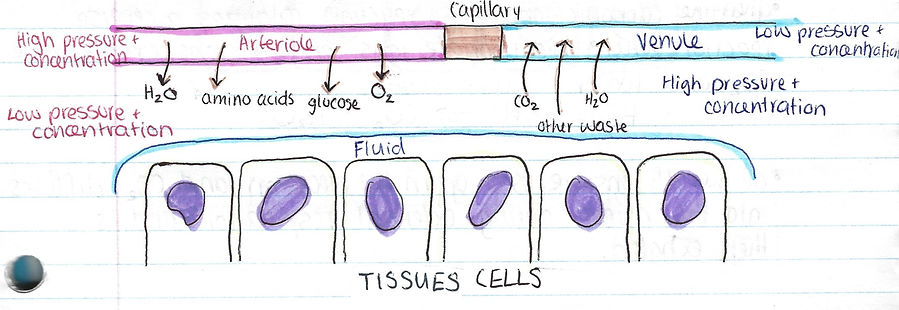 Capillary
High pressure +
concentration
Arteriole
Venule
Low pressure +
concentration
H2O
amino acids
glucose
O2
CO2
H2O
other waste
High pressure +
concentration
Low pressure +
concentration
Fluid
TISSUES CELLS